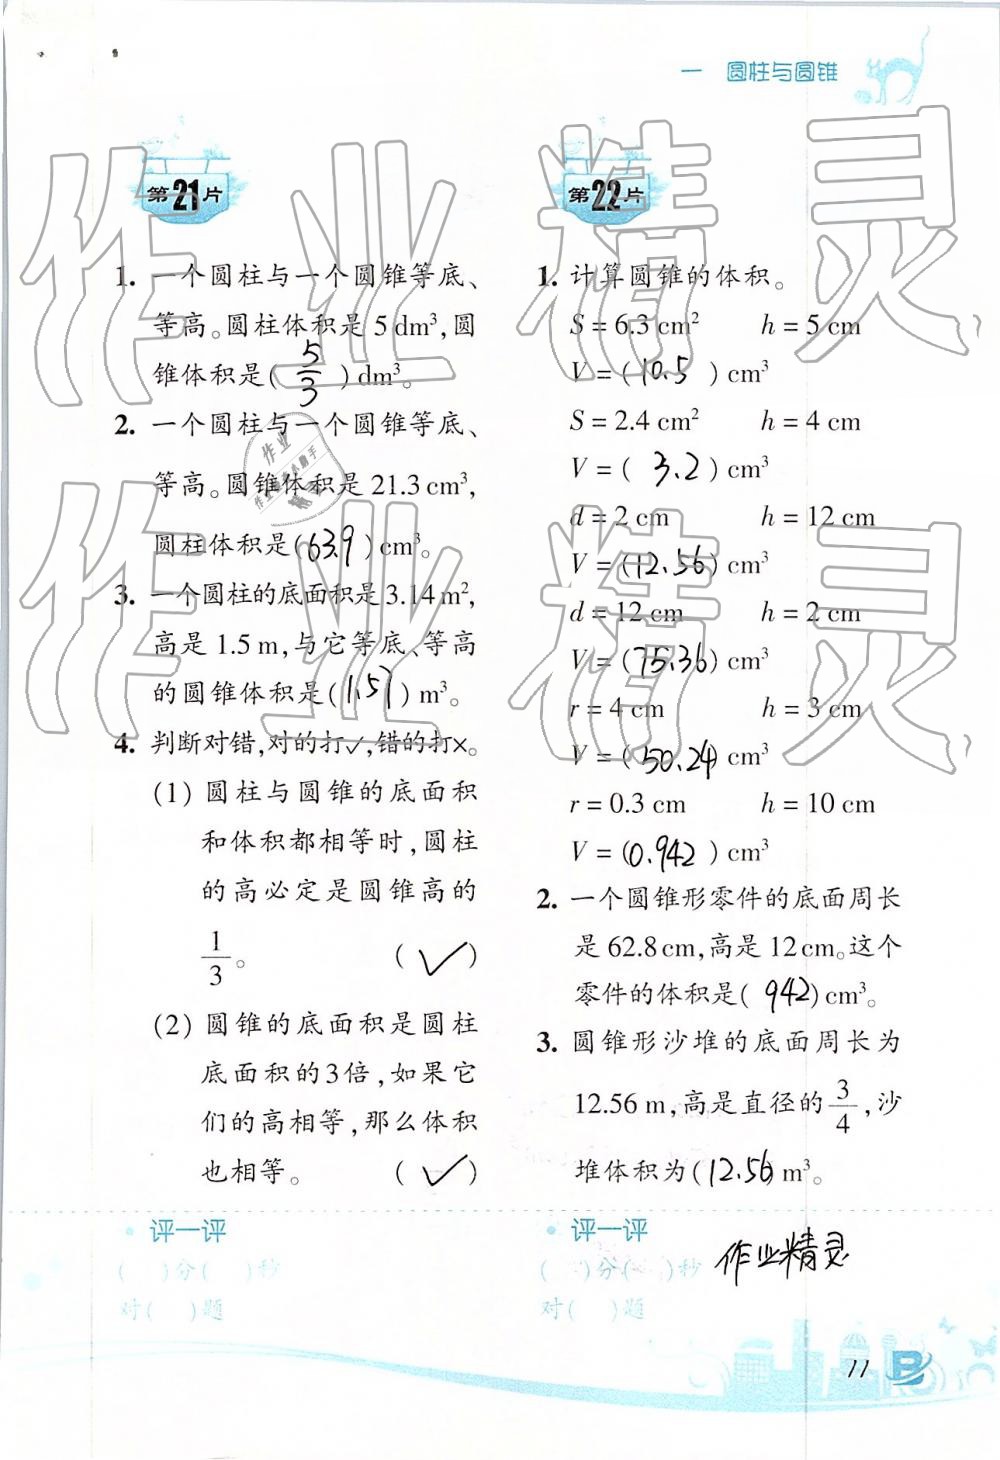 一 圆柱与圆锥
第21片
1. 一个圆柱与一个圆锥等底、
等高。圆柱体积是5 dm³,圆
锥体积是( 5/3 )dm³。
2. 一个圆柱与一个圆锥等底、
等高。圆锥体积是21.3 cm³,
圆柱体积是(63.9)cm³。
3. 一个圆柱的底面积是3.14 m²,
高是1.5 m,与它等底、等高
的圆锥体积是(1.57)m³。
4. 判断对错,对的打✓,错的打×。
(1) 圆柱与圆锥的底面积
和体积都相等时,圆柱
的高必定是圆锥高的
1/3。 (✓)
(2) 圆锥的底面积是圆柱
底面积的3倍,如果它
们的高相等,那么体积
也相等。 (✓)
评一评
( )分( )秒
对( )题
第22片
1. 计算圆锥的体积。
S=6.3 cm² h=5 cm
V=(10.5)cm³
S=2.4 cm² h=4 cm
V=(3.2)cm³
d=2 cm h=12 cm
V=(12.56)cm³
d=12 cm h=2 cm
V=(75.36)cm³
r=4 cm h=3 cm
V=(50.24)cm³
r=0.3 cm h=10 cm
V=(0.942)cm³
2. 一个圆锥形零件的底面周长
是62.8 cm,高是12 cm。这个
零件的体积是(942)cm³。
3. 圆锥形沙堆的底面周长为
12.56 m,高是直径的3/4,沙
堆体积为(12.56)m³。
评一评
( )分( )秒
对( )题
作业精灵
11
B
作业精灵
作业精灵